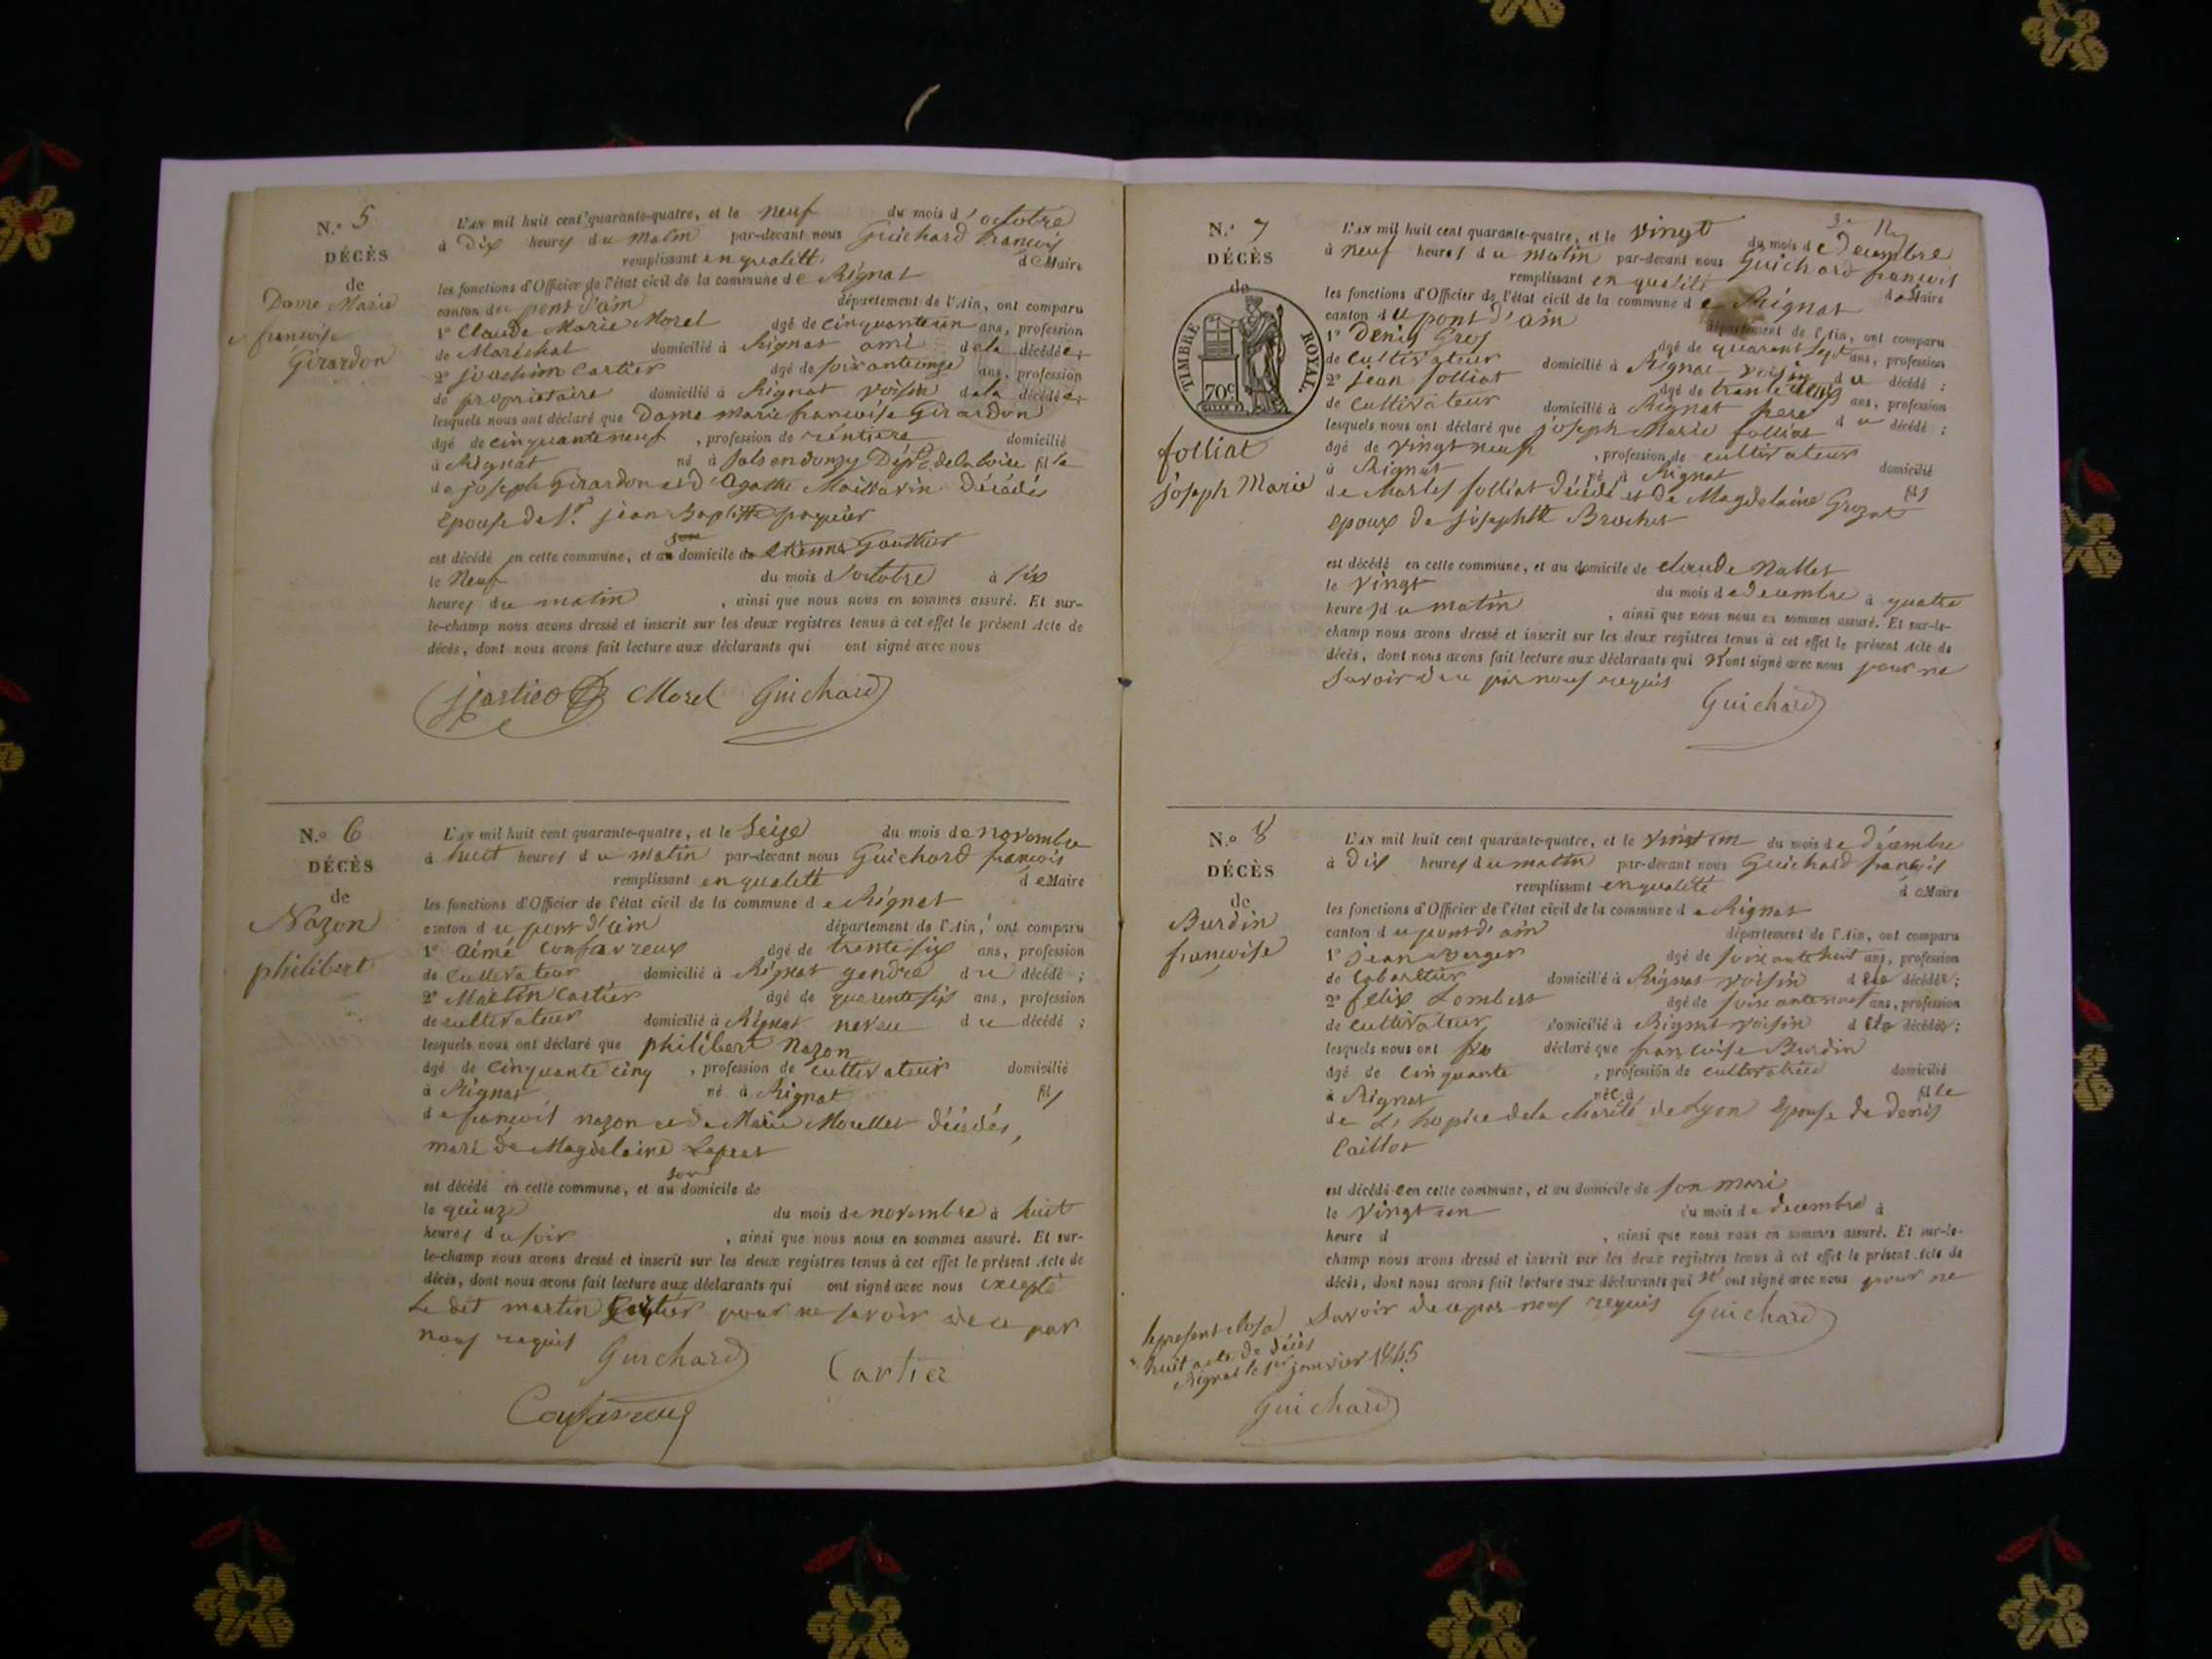 N.° 5
DÉCÈS
de
Dame Marie
françoise
Girardon
L'AN mil huit cent quarante-quatre, et le neuf du mois d'octobre
à Dix heures du matin par-devant nous Guichard françois
remplissant en qualité de Maire
les fonctions d'Officier de l'état civil de la commune de Rignat
canton de pont d'ain département de l'Ain, ont comparu
1° Claude Marie Morel âgé de cinquante un ans, profession
de Maréchal domicilié à Rignat ami de la décédée;
2° joachim Cartier âgé de soixante onze ans, profession
de propriétaire domicilié à Rignat voisin de la décédée;
lesquels nous ont déclaré que Dame marie françoise Girardon
âgé de cinquante neuf, profession de rentiere domicilié
à Rignat né à Salt en donzy Dép.t de la loire fille
de joseph Girardon et d'Agathe décédés
épouse de S.r jean Baptiste
son
est décédé en cette commune, et au domicile de Etienne Gauthier
le Neuf du mois d'octobre à six
heures du matin, ainsi que nous nous en sommes assuré. Et sur-
le-champ nous avons dressé et inscrit sur les deux registres tenus à cet effet le présent Acte de
décès, dont nous avons fait lecture aux déclarants qui ont signé avec nous
Morel Guichard
N.° 6
DÉCÈS
de
Nazon
philibert
L'AN mil huit cent quarante-quatre, et le Seize du mois de novembre
à huit heures du matin par-devant nous Guichard françois
remplissant en qualité de Maire
les fonctions d'Officier de l'état civil de la commune de Rignat
canton du pont d'ain département de l'Ain, ont comparu
1° Aimé Confavreux âgé de trente six ans, profession
de Cultivateur domicilié à Rignat gendre du décédé;
2° Martin Cartier âgé de quarente six ans, profession
de cultivateur domicilié à Rignat neveu du décédé;
lesquels nous ont déclaré que philibert Nazon
âgé de Cinquante cinq, profession de cultivateur domicilié
à Rignat né à Rignat fils
de françois nazon et de Marie Morellet décédés,
mari de Magdelaine
son
est décédé en cette commune, et au domicile de
le quinze du mois de novembre à huit
heures du soir, ainsi que nous nous en sommes assuré. Et sur-
le-champ nous avons dressé et inscrit sur les deux registres tenus à cet effet le présent Acte de
décès, dont nous avons fait lecture aux déclarants qui ont signé avec nous excepté
Le dit martin Cartier pour ne savoir de ce par
nous requis Guichard Cartier
Confavreux
3e
N.° 7
DÉCÈS
de
TIMBRE ROYAL.
70c
folliat
joseph Marie
L'AN mil huit cent quarante-quatre, et le vingt du mois de Decembre
à neuf heures du matin par-devant nous Guichard françois
remplissant en qualité de Maire
les fonctions d'Officier de l'état civil de la commune de Rignat
canton du pont d'ain département de l'Ain, ont comparu
1° Denis Gros âgé de quarent sept ans, profession
de Cultivateur domicilié à Rignat voisin du décédé;
2° jean folliat âgé de trente deux ans, profession
de Cultivateur domicilié à Rignat frere du décédé;
lesquels nous ont déclaré que joseph Marie folliat
âgé de vingt neuf, profession de cultivateur domicilié
à Rignat né à Rignat fils
de Charles folliat décédé et de Magdelaine Grozat
epoux de josephte Brochet
est décédé en cette commune, et au domicile de claude
le vingt du mois de decembre à quatre
heures du matin, ainsi que nous nous en sommes assuré. Et sur-le-
champ nous avons dressé et inscrit sur les deux registres tenus à cet effet le présent Acte de
décès, dont nous avons fait lecture aux déclarants qui n'ont signé avec nous pour ne
savoir de ce par nous requis
Guichard
N.° 8
DÉCÈS
de
Burdin
françoise
L'AN mil huit cent quarante-quatre, et le vingt un du mois de décembre
à dix heures du matin par-devant nous Guichard françois
remplissant en qualité de Maire
les fonctions d'Officier de l'état civil de la commune de Rignat
canton du pont d'ain département de l'Ain, ont comparu
1° jean verger âgé de soixante huit ans, profession
de domicilié à Rignat voisin de la décédée;
2° felix Lombert âgé de soixante neuf ans, profession
de cultivateur domicilié à Rignat voisin de la décédée;
lesquels nous ont déclaré que françoise Burdin
âgé de Cinquante, profession de cultivatrice domicilié
à Rignat née à fille
de L'hospice de la charité de Lyon épouse de denis
Caillot
est décédée en cette commune, et au domicile de son mari
le vingt un du mois de decembre à
heure d, ainsi que nous nous en sommes assuré. Et sur-le-
champ nous avons dressé et inscrit sur les deux registres tenus à cet effet le présent Acte de
décès, dont nous avons fait lecture aux déclarants qui n'ont signé avec nous pour ne
savoir de ce par nous requis Guichard
le present clos à
huit acte de décès
Rignat le 1er janvier 1845
Guichard